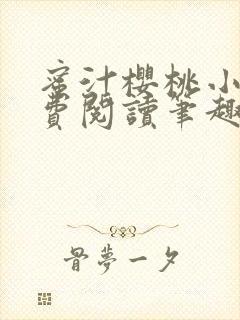 蜜汁櫻桃小
費閱讀筆趣
骨夢一夕